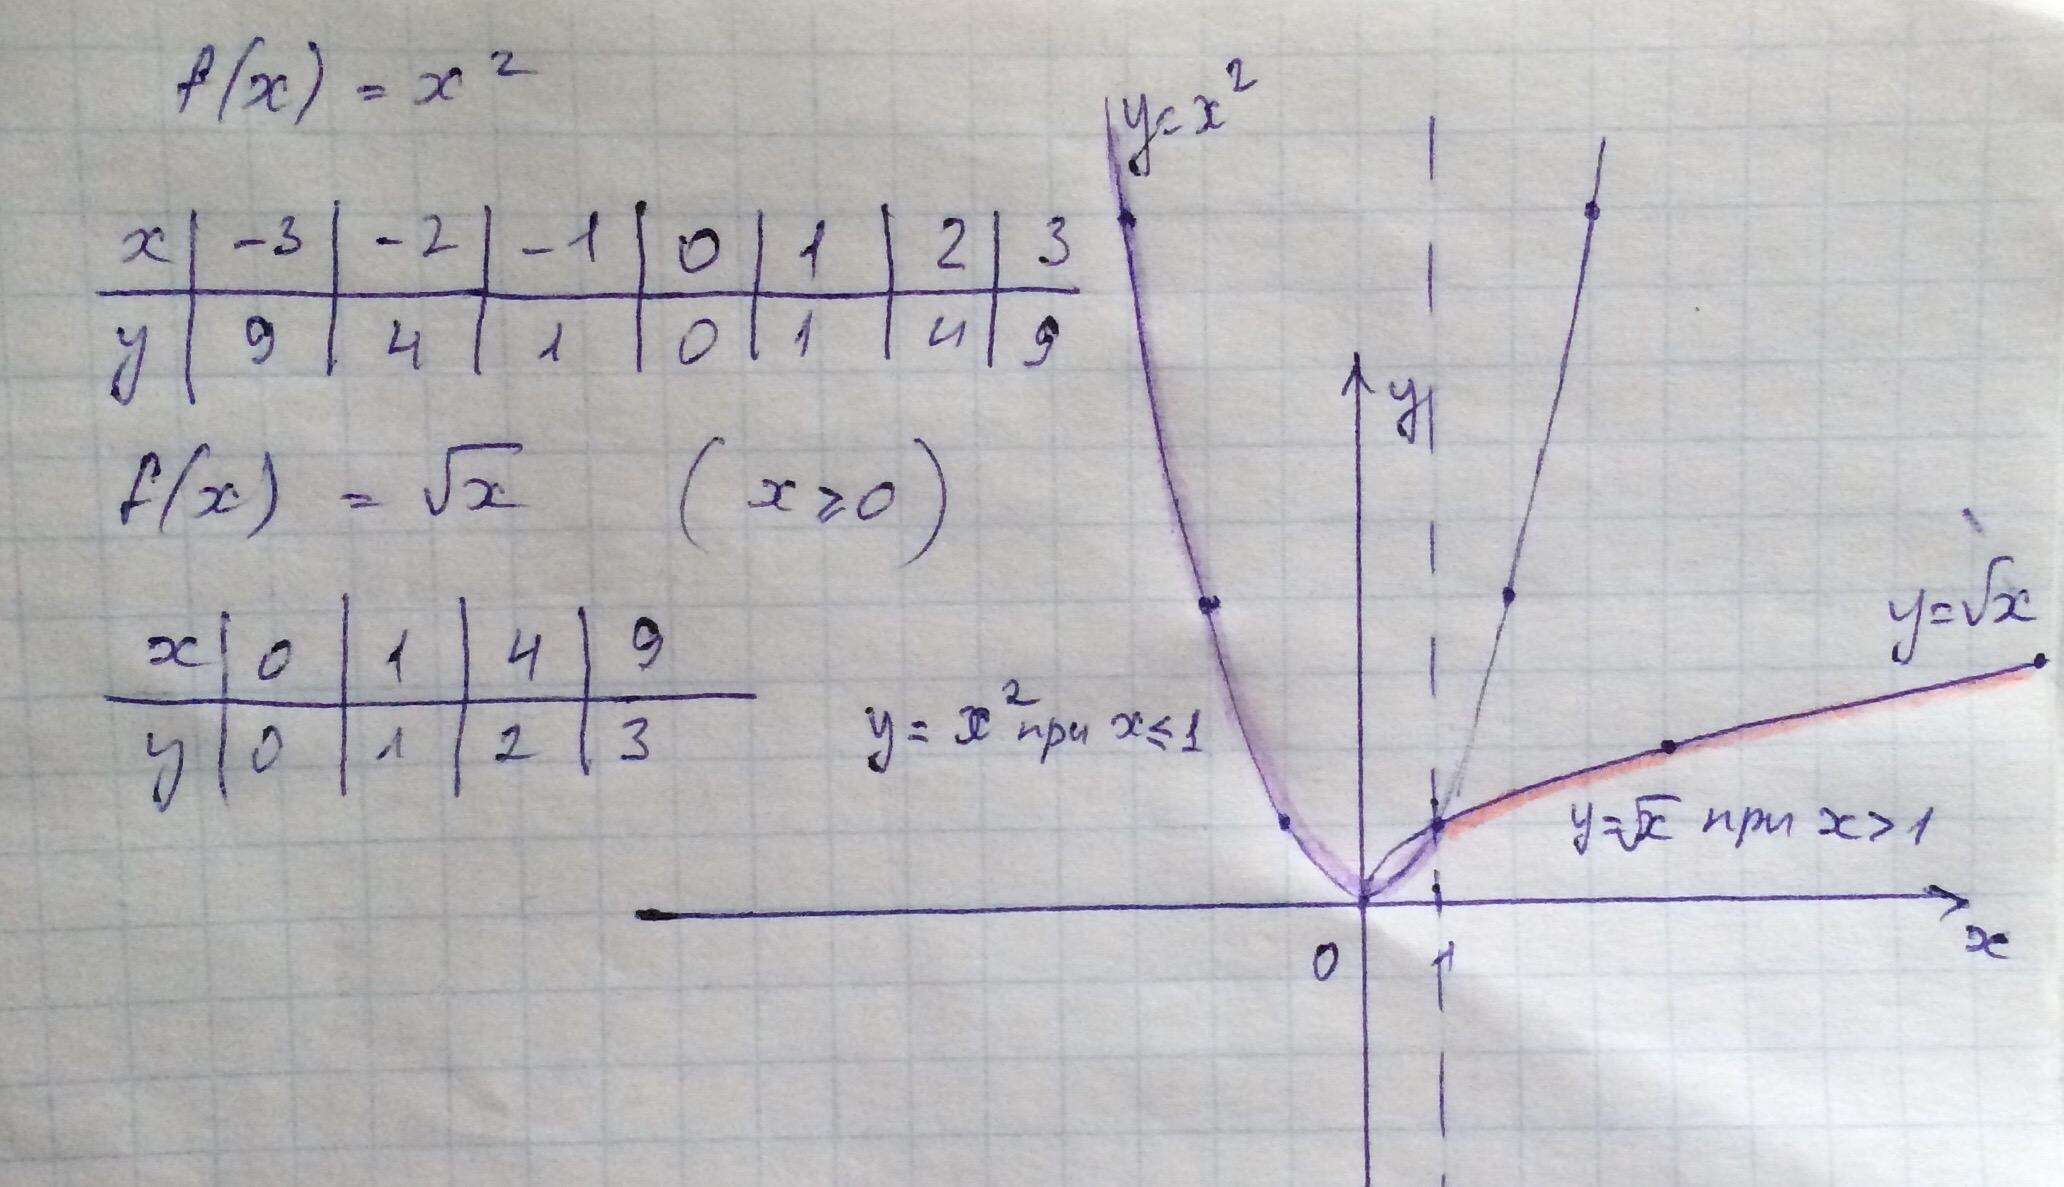 f(x) = x²
x | -3 | -2 | -1 | 0 | 1 | 2 | 3
y | 9 | 4 | 1 | 0 | 1 | 4 | 9
f(x) = √x (x ≥ 0)
x | 0 | 1 | 4 | 9
y | 0 | 1 | 2 | 3
y = x²
y
y = √x
y = x² при x ≤ 1
y = √x при x > 1
0
1
x